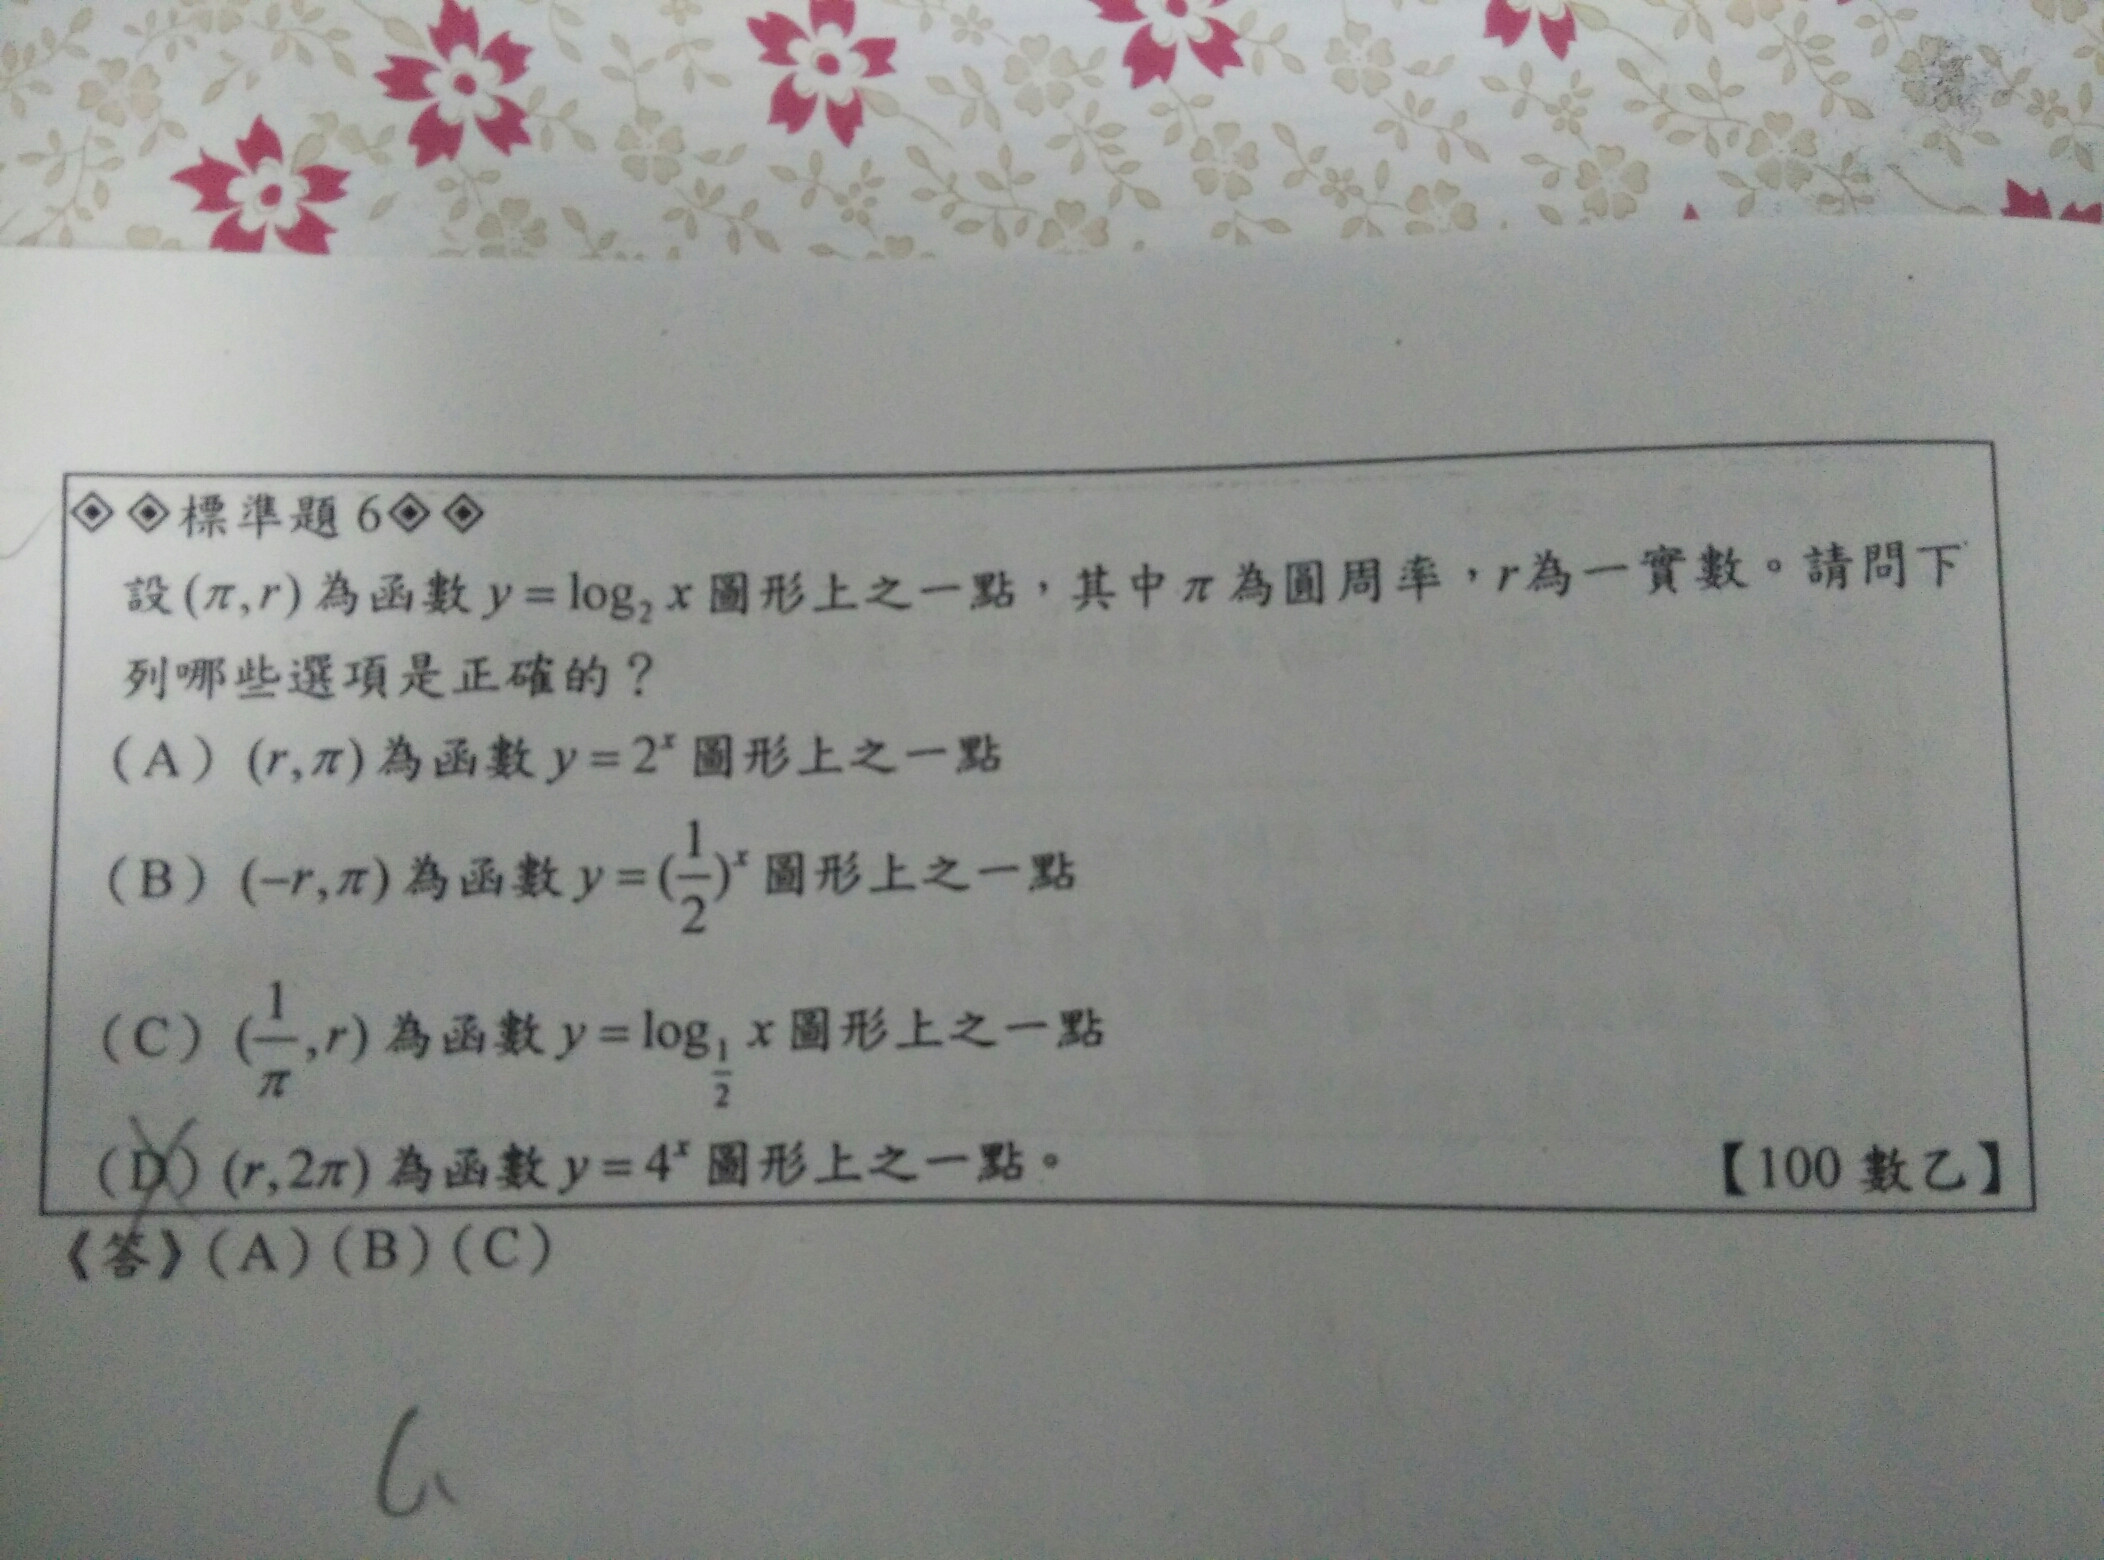 ◈◈標準題 6◈◈
設(π,r)為函數 y=log₂ x 圖形上之一點，其中π為圓周率，r為一實數。請問下
列哪些選項是正確的？
(A) (r,π)為函數 y=2ˣ 圖形上之一點
(B) (−r,π)為函數 y=(1/2)ˣ 圖形上之一點
(C) (1/π,r)為函數 y=log_{1/2} x 圖形上之一點
(D) (r,2π)為函數 y=4ˣ 圖形上之一點。 【100 數乙】
《答》(A)(B)(C)